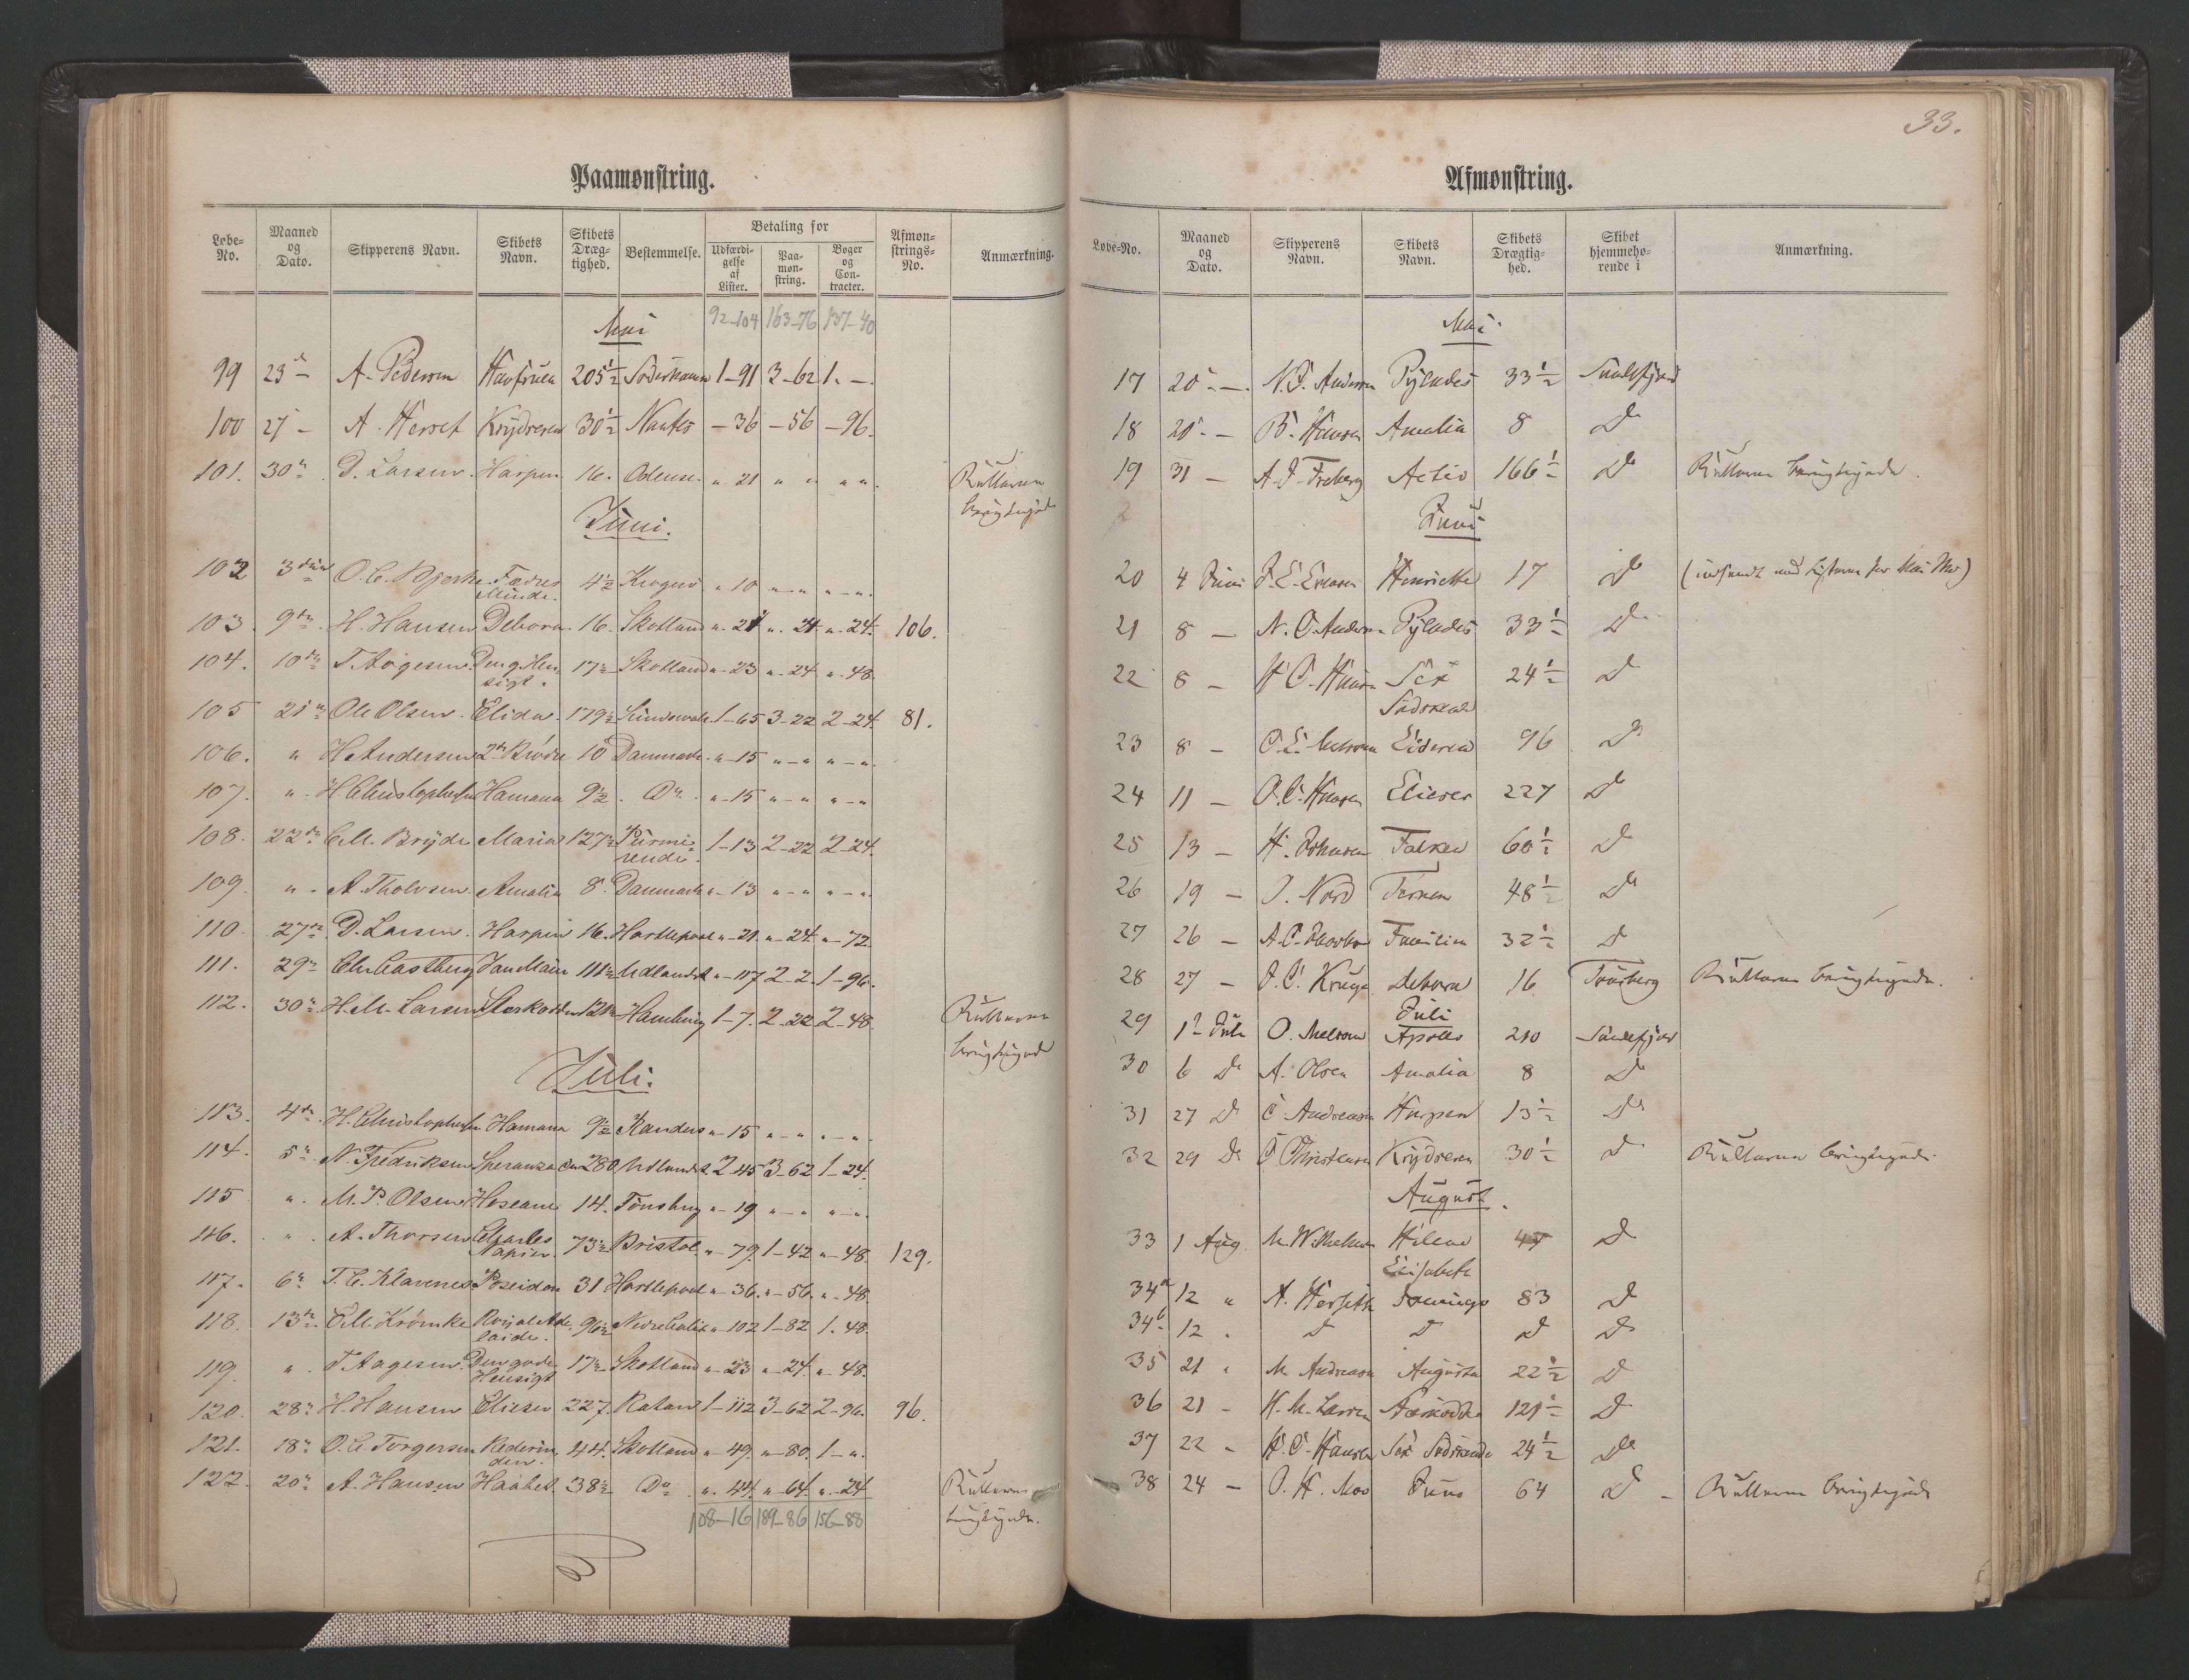 33.
Paamønstring.
Løbe-No. Maaned og Dato. Skipperens Navn. Skibets Navn. Skibets Dræg-tighed. Bestemmelse. Betaling for Udfærdi-gelse af Lister. Paa-møn-string. Bøger og Con-tracter. Afmøn-strings-No. Anmærkning.
Mai 92-104 163-76 137-40
99 23 A. Pedersen Havfruen 205½ Söderhamn 1-91 3-62 1.-.
100 27 - A. Herset Krydseren 30½ Nantes -36 -56 -96.
101. 30 D. Larsen Harpen 16. Odense. " 21 " " " ". Rullerne
Juni.
102 3 O. C. Bjerke Fædres Minde. 4½ Kragerö " 10 " - " " - ".
103. 9de H. Hansen Debora 16. Skotland "- 21 "- 24 "- 24. 106.
104. 10de T. Aagesen Den g. Hensigt. 17½ Skotland "- 23 "- 24 "- 48.
105 21 Ole Olsen. Elida. 179½ Sundsvale 1-65 3-22 2-24. 81.
106. " H. Andersen 2de Brödre 10 Danmark. "-15 "-" "-".
107. " H. Christophersen Hamana 9½. Do. "-15 "-" "-"
108. 22de C. M. Bryde Maria 127½ 1-13 2-22 2-24.
109. " A. Tholvsen. Amalia 8. Danmark "-13 "-" "-".
110. 27de D. Larsen. Harpen 16. Hartlepool "-21. "-24. "-72.
111. 29 Chr. Castberg Jan Main 111½ Udlandet "-117 2-2. 1-96.
112. 30 H. M. Larsen Skarkodden 121½ Hamburg 1-7. 2-22 2-48 Rullerne
Juli.
113. 4de H. Christophersen Hamana 9½ Randers "-15 "-" "-".
114. 5 N. Fredriksen Speranza 280 Udlandet 2 45 3-62 1-24.
115 " M. P. Olsen Hoseane 14. Tönsberg "-19 "-" "-".
116. " A. Thorsen Charles Napier. 73½ Bristol "-79. 1-42 "-48. 129.
117. 6 T. C. Klavenes Poseidon 31 Hartlepool "-36. "-56. "-48.
118. 13de C. M. Krömke Royal Adelaide. 96½ "-102 1-82 1.48.
119. " T. Aagesen Den gode Hensigt 17½ Skotland "-23 "-24. "-48.
120. 28 H. Hansen Elieser 227. Ratan 1-112 3-62 2-96. 96.
121. 18 O. C. Torgersen 44. Skotland "-49. "-80. 1-".
122. 20 A. Hansen Haabet. 38½ Do. "-44. "-64. "-24 Rullerne
108-16 189-86 156-88
Afmønstring.
Løbe-No. Maaned og Dato. Skipperens Navn. Skibets Navn. Skibets Drægtig-hed. Skibet hjemmehø-rende i Anmærkning.
Mai
17 25 - N. O. Andersen Pylades 33½ Sandefjord
18 25 - B. Hansen Amalia 8 Do
19 31 - A. J. Freberg Activ 166½ Do Rullerne
Juni
20 4 Juni J. E. Ericsen Henriette 17 Do (indsendt med Listerne for Mai Md)
21 8 - N. O. Andersen Pylades 33½ Do
22 8 - H C. Hansen Sex Södskende 24½ Do
23 8 - O. E. Eideren 96 Do
24 11 - O. C. Hansen Elieser 227 Do
25 13 - H. Johnsen Falken 60½ Do
26 19 - J. Nord Ternen 48½ Do
27 26 - A. C. Jacobsen Familien 32½ Do
28 27 - O. C. Kruge Debora 16 Tönsberg Rullerne
Juli
29 1 Juli O. Melsom Apollo 210 Sandefjord
30 6 Do A. Olsen Amalia 8 Do
31 27 Do C Andreasen Harpen 15½ Do
32 29 Do Christensen Krydseren 30½ Do Rullerne
August.
33 1 Aug M. Wilhelmsen Helene Elisabeth 47 Do
34a 12 " A. Herseth Domingo 83 Do
34b 12 " Do Do Do Do
35 21 " M. Andreasen Augusta 22½ Do
36 21 - H. M. Larsen 121½ Do
37 22 - H. C. Hansen Sex Södskende 24½ Do
38 24 - O. H. Moe Juno 64 Do - Rullerne